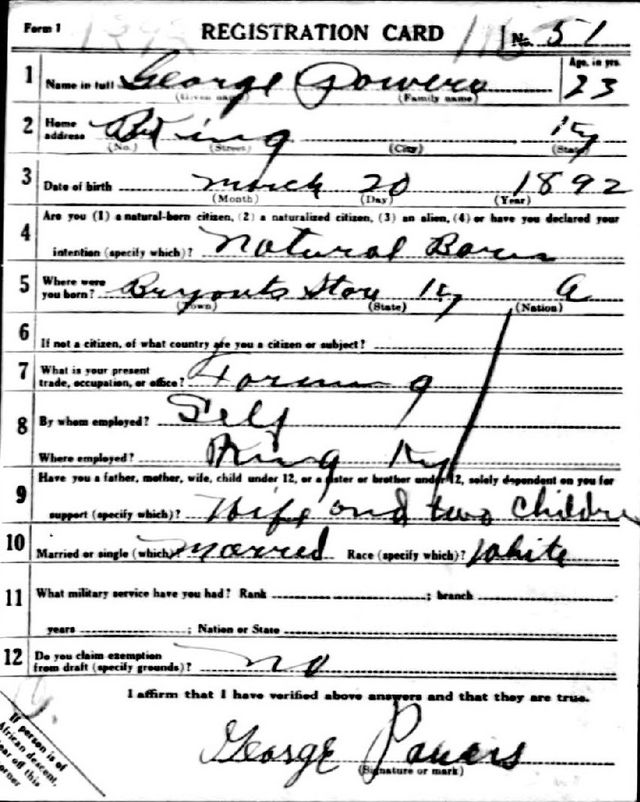 Form 1 REGISTRATION CARD No. 51
1 Name in full George Powers Age, in yrs. 23
(Given name) (Family name)
2 Home address King Ky
(No.) (Street) (City) (State)
3 Date of birth March 20 1892
(Month) (Day) (Year)
4 Are you (1) a natural-born citizen, (2) a naturalized citizen, (3) an alien, (4) or have you declared your
intention (specify which)? Natural Born
5 Where were you born? Bryants Store Ky A
(Town) (State) (Nation)
6 If not a citizen, of what country are you a citizen or subject?
7 What is your present trade, occupation, or office? Farming
8 By whom employed? Self
Where employed? King Ky
9 Have you a father, mother, wife, child under 12, or a sister or brother under 12, solely dependent on you for
support (specify which)? Wife and two Children
10 Married or single (which) Married Race (specify which)? White
11 What military service have you had? Rank ; branch
years ; Nation or State
12 Do you claim exemption from draft (specify grounds)? No
I affirm that I have verified above answers and that they are true.
George Powers
(Signature or mark)
If person is of
African descent,
tear off this
corner